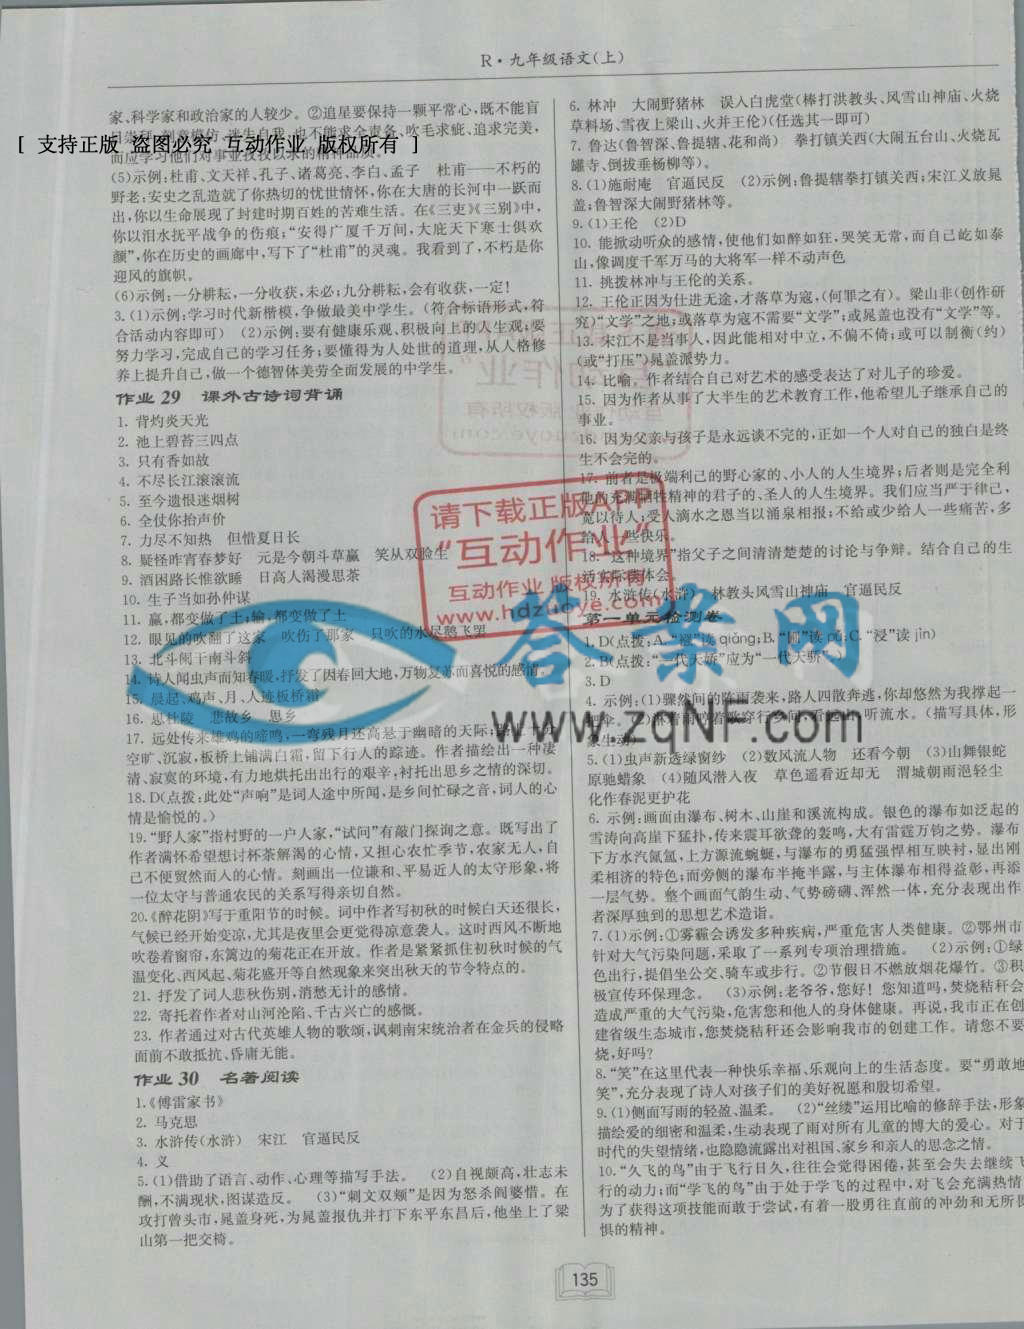 R·九年级语文(上)
家、科学家和政治家的人较少。②追星要保持一颗平常心,既不能盲
也不能求全责备、吹毛求疵、追求完美,
[ 支持正版 盗图必究 互动作业 版权所有 ]
而应学习他们对事业孜孜以求的精神品质。
(5)示例:杜甫、文天祥、孔子、诸葛亮、李白、孟子 杜甫——不朽的
野老;安史之乱造就了你热切的忧世情怀,你在大唐的长河中一跃而
出,你以生命展现了封建时期百姓的苦难生活。在《三吏》《三别》中,
你以泪水抚平战争的伤痕;“安得广厦千万间,大庇天下寒士俱欢
颜”,你在历史的画廊中,写下了“杜甫”的灵魂。我看到了,不朽是你
迎风的旗帜。
(6)示例:一分耕耘,一分收获,未必;九分耕耘,会有收获,一定!
3.(1)示例:学习时代新楷模,争做最美中学生。(符合标语形式,符
合活动内容即可) (2)示例:要有健康乐观、积极向上的人生观;要
努力学习,完成自己的学习任务;要懂得为人处世的道理,从人格修
养上提升自己,做一个德智体美劳全面发展的中学生。
作业 29 课外古诗词背诵
1. 背灼炎天光
2. 池上碧苔三四点
3. 只有香如故
4. 不尽长江滚滚流
5. 至今遗恨迷烟树
6. 全仗你抬声价
7. 力尽不知热 但惜夏日长
8. 疑怪昨宵春梦好 元是今朝斗草赢 笑从双脸生
9. 酒困路长惟欲睡 日高人渴漫思茶
10. 生子当如孙仲谋
11. 赢,都变做了土;输,都变做了土
12. 眼见的吹翻了这家 吹伤了那家 只吹的水尽鹅飞罢
13. 北斗阑干南斗斜
14. 诗人闻虫声而知春暖,抒发了因春回大地,万物复苏而喜悦的感情。
15. 晨起、鸡声、月、人迹板桥霜
16. 思杜陵 悲故乡 思乡
17. 远处传来雄鸡的啼鸣,一弯残月还高悬于幽暗的天际,
空旷、沉寂,板桥上铺满白霜,留下行人的踪迹。作者描绘出一种凄
清、寂寞的环境,有力地烘托出出行的艰辛,衬托出思乡之情的深切。
18. D(点拨:此处“声响”是词人途中所闻,是乡间忙碌之音,词人的心
情是愉悦的。)
19. “野人家”指村野的一户人家,“试问”有敲门探询之意。既写出了
作者满怀希望想讨杯茶解渴的心情,又担心农忙季节,农家无人,自
己不便贸然而入的心情。刻画出一位谦和、平易近人的太守形象,将
一位太守与普通农民的关系写得亲切自然。
20.《醉花阴》写于重阳节的时候。词中作者写初秋的时候白天还很长,
气候已经开始变凉,尤其是夜里会更觉得凉意袭人。这时西风不断地
吹卷着窗帘,东篱边的菊花正在开放。作者是紧紧抓住初秋时候的气
温变化、西风起、菊花盛开等自然现象来突出秋天的节令特点的。
21. 抒发了词人悲秋伤别,消愁无计的感情。
22. 寄托着作者对山河沦陷、千古兴亡的感慨。
23. 作者通过对古代英雄人物的歌颂,讽刺南宋统治者在金兵的侵略
面前不敢抵抗、昏庸无能。
作业 30 名著阅读
1.《傅雷家书》
2. 马克思
3. 水浒传(水浒) 宋江 官逼民反
4. 义
5.(1)借助了语言、动作、心理等描写手法。 (2)自视颇高,壮志未
酬,不满现状,图谋造反。 (3)“刺文双颊”是因为怒杀阎婆惜。在
攻打曾头市,晁盖身死,为晁盖报仇并打下东平东昌后,他坐上了梁
山第一把交椅。
6. 林冲 大闹野猪林 误入白虎堂(棒打洪教头、风雪山神庙、火烧
草料场、雪夜上梁山、火并王伦)(任选其一即可)
7. 鲁达(鲁智深、鲁提辖、花和尚) 拳打镇关西(大闹五台山、火烧瓦
罐寺、倒拔垂杨柳等)。
8.(1)施耐庵 官逼民反 (2)示例:鲁提辖拳打镇关西;宋江义放晁
盖;鲁智深大闹野猪林等。
9.(1)王伦 (2)D
10. 能掀动听众的感情,使他们如醉如狂,哭笑无常,而自己屹如泰
山,像调度千军万马的大将军一样不动声色
11. 挑拨林冲与王伦的关系。
12. 王伦正因为仕进无途,才落草为寇,(何罪之有)。梁山非(创作研
究)“文学”之地;或落草为寇不需要“文学”;或晁盖也没有“文学”等。
13. 宋江不是当事人,因此能相对中立,不偏不倚;或可以制衡(约)
(或“打压”)晁盖派势力。
14. 比喻,作者结合自己对艺术的感受表达了对儿子的珍爱。
15. 因为作者从事了大半生的艺术教育工作,他希望儿子继承自己的
事业。
16. 因为父亲与孩子是永远谈不完的,正如一个人对自己的独白是终
生不会完的。
17. 前者是极端利己的野心家的、小人的人生境界;后者则是完全利
他的充满牺牲精神的君子的、圣人的人生境界。我们应当严于律己,
宽以待人;受人滴水之恩当以涌泉相报;不给或少给人一些痛苦,多
给人一些快乐。
18. “这种境界”指父子之间清清楚楚的讨论与争辩。结合自己的生
活实际谈体会。
19. 水浒传(水浒) 林教头风雪山神庙 官逼民反
第一单元检测卷
2. B(点拨:“一代天娇”应为“一代天骄”)
3. D
4. 示例:(1)骤然间的阵雨袭来,路人四散奔逃,你却悠然为我撑起一
听流水。(描写具体,形
象生动)
5.(1)虫声新透绿窗纱 (2)数风流人物 还看今朝 (3)山舞银蛇
原驰蜡象 (4)随风潜入夜 草色遥看近却无 渭城朝雨浥轻尘
化作春泥更护花
6. 示例:画面由瀑布、树木、山崖和溪流构成。银色的瀑布如泛起的
雪涛向高崖下猛扑,传来震耳欲聋的轰鸣,大有雷霆万钧之势。瀑布
下方水汽氤氲,上方源流蜿蜒,与瀑布的勇猛强悍相互映衬,显出刚
柔相济的特色;而旁侧的瀑布半掩半露,与主体瀑布相得益彰,再添
一层气势。整个画面气韵生动、气势磅礴、浑然一体,充分表现出作
者深厚独到的思想艺术造诣。
7.(1)示例:①雾霾会诱发多种疾病,严重危害人类健康。②鄂州市
针对大气污染问题,采取了一系列专项治理措施。 (2)示例:①绿
色出行,提倡坐公交、骑车或步行。②节假日不燃放烟花爆竹。③积
极宣传环保理念。 (3)示例:老爷爷,您好!您知道吗,焚烧秸秆会
造成严重的大气污染,危害您和他人的身体健康。再说,我市正在创
建省级生态城市,您焚烧秸秆还会影响我市的创建工作。请您不要
烧,好吗?
8. “笑”在这里代表一种快乐幸福、乐观向上的生活态度。要“勇敢地
笑”,充分表现了诗人对孩子们的美好祝愿和殷切希望。
9.(1)侧面写雨的轻盈、温柔。 (2)“丝缕”运用比喻的修辞手法,形象
描绘爱的细密和温柔,生动表现了雨对所有儿童的博大的爱心。对于
时代的失望情绪,也隐隐流露出对祖国、家乡和亲人的思念之情。
10. “久飞的鸟”由于飞行日久,往往会觉得困倦,甚至会失去继续飞
行的动力;而“学飞的鸟”由于处于学飞的过程中,对飞会充满热情
为了获得这项技能而敢于尝试,有着一股勇往直前的冲劲和无所畏
惧的精神。
135
请下载正版APP
“互动作业”
互动作业 版权所有
www.hdzuoye.com
答案网
www.zqNF.com